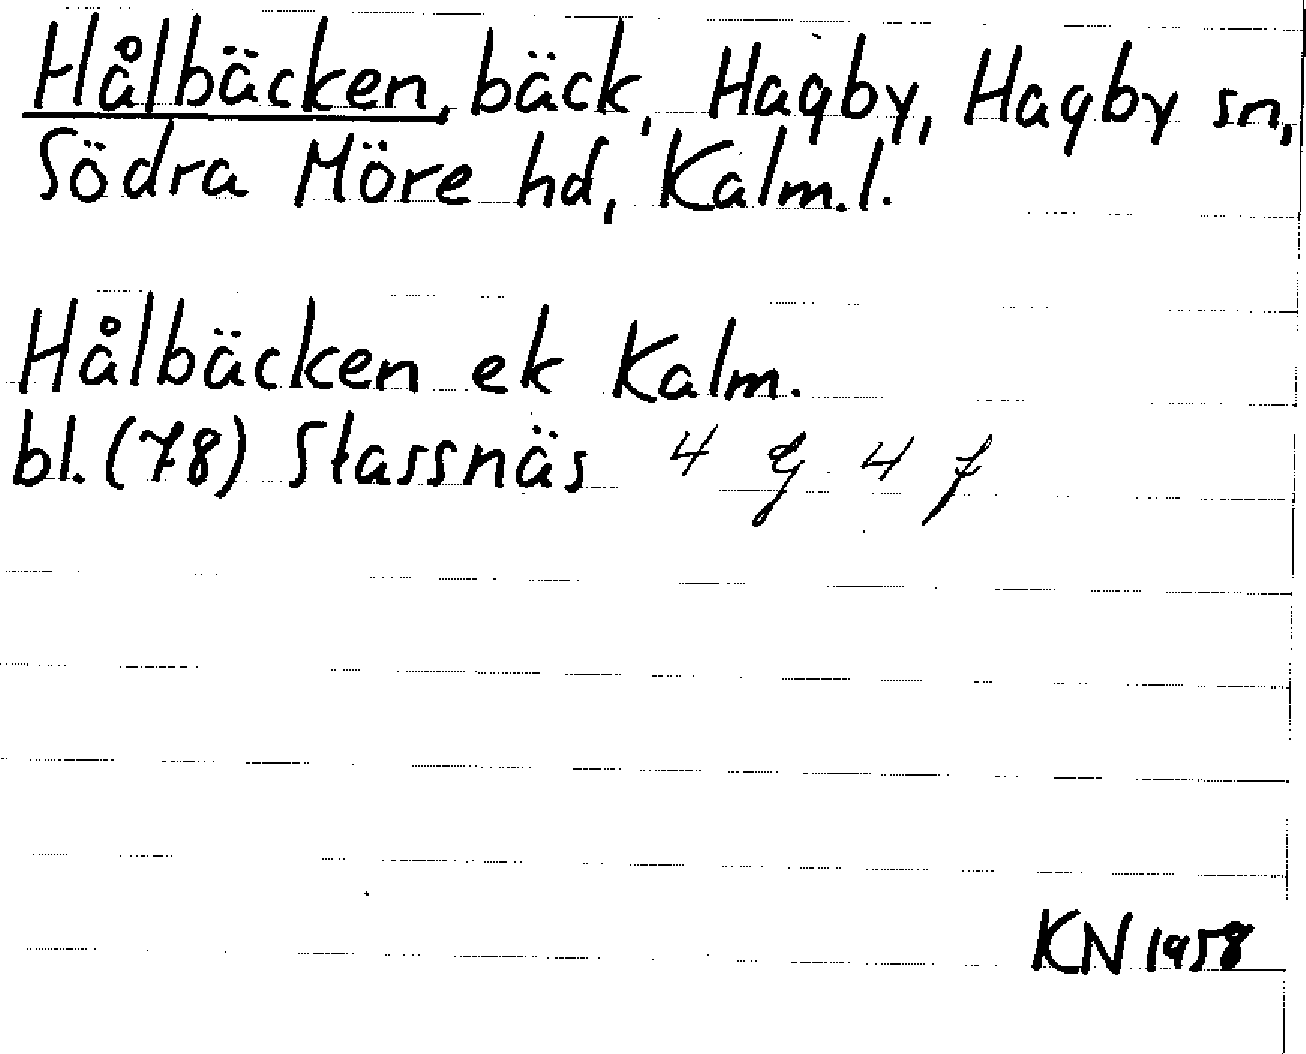 Hålbäcken, bäck, Hagby, Hagby sn,
Södra Möre hd, Kalm.l.
Hålbäcken ek Kalm.
bl. (78) Stassnäs 4 G 4 f
KN 1958